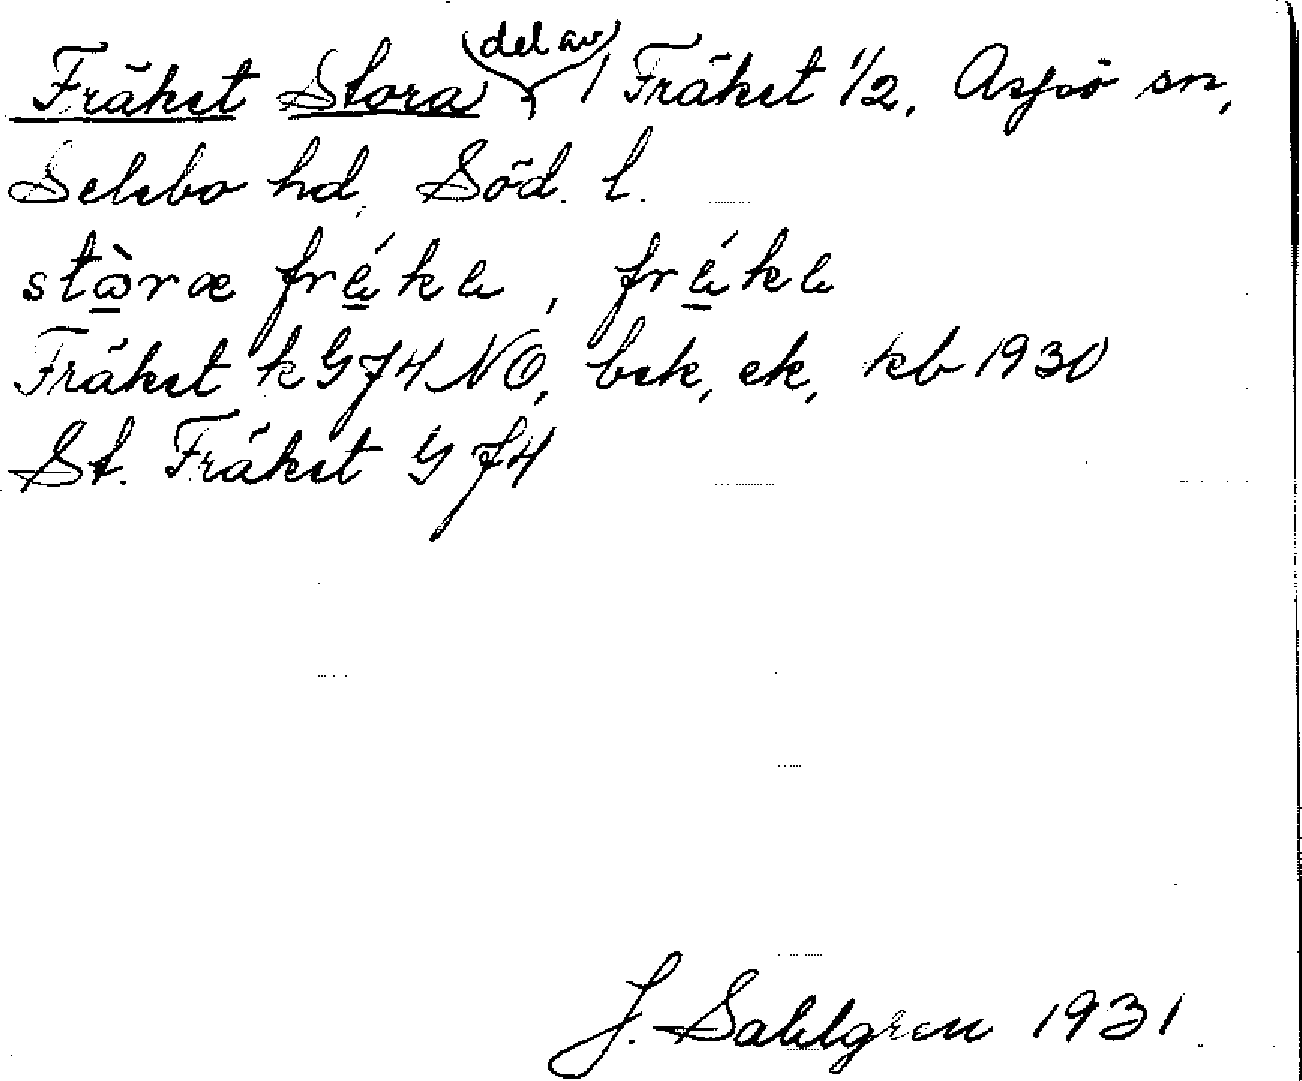 Fräket Stora, del av / Fräket 1/2, Aspö sn,
Selebo hd, Söd. l.
stὼræ frǽkɐ, frǽkɐ
Fräket k G J4 NO, bek, ek, kb 1930
St. Fräket G J4
J. Sahlgren 1931